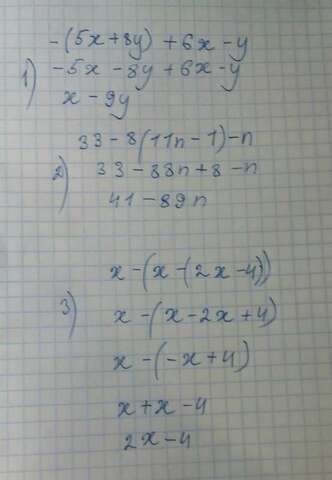 -(5x+8y)+6x-y
1) -5x-8y+6x-y
x-9y
33-8(11n-1)-n
2) 33-88n+8-n
41-89n
x-(x-(2x-4))
3) x-(x-2x+4)
x-(-x+4)
x+x-4
2x-4